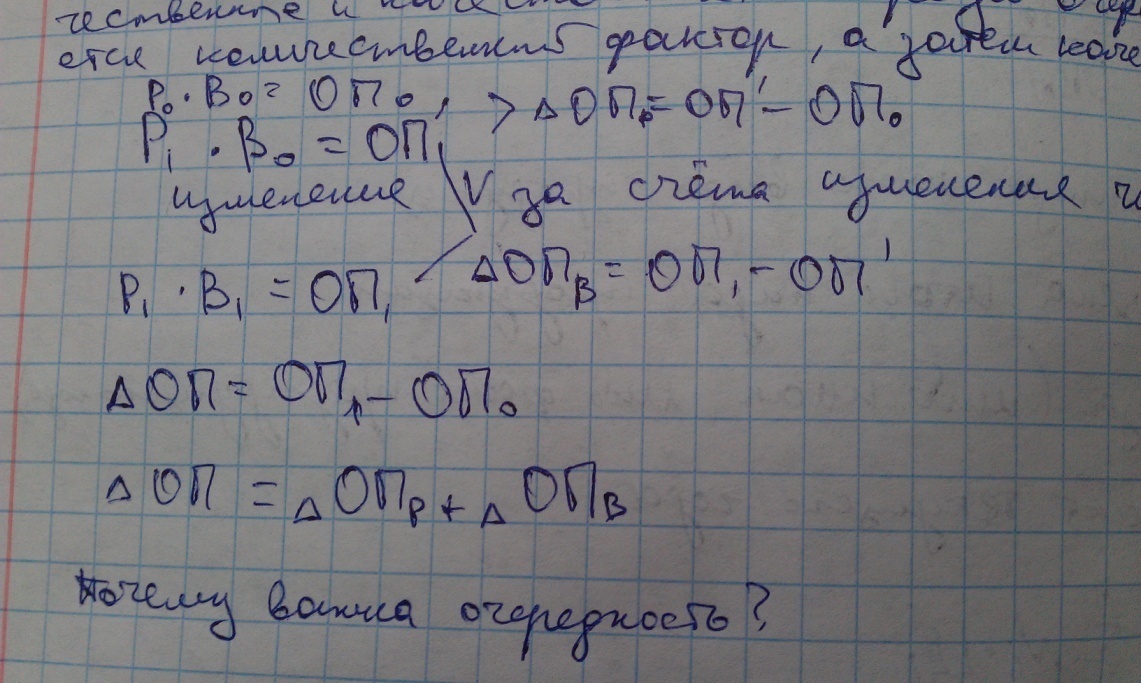 чественные и
ется количественный фактор, а затем каче
P₀ · B₀ = ОП₀ > ΔОПₚ = ОП' − ОП₀
P₁ · B₀ = ОП'
изменение V за счёта изменения ч
P₁ · B₁ = ОП₁ ΔОПв = ОП₁ − ОП'
ΔОП = ОП₁ − ОП₀
ΔОП = ΔОПₚ + ΔОПв
Почему важна очередность?